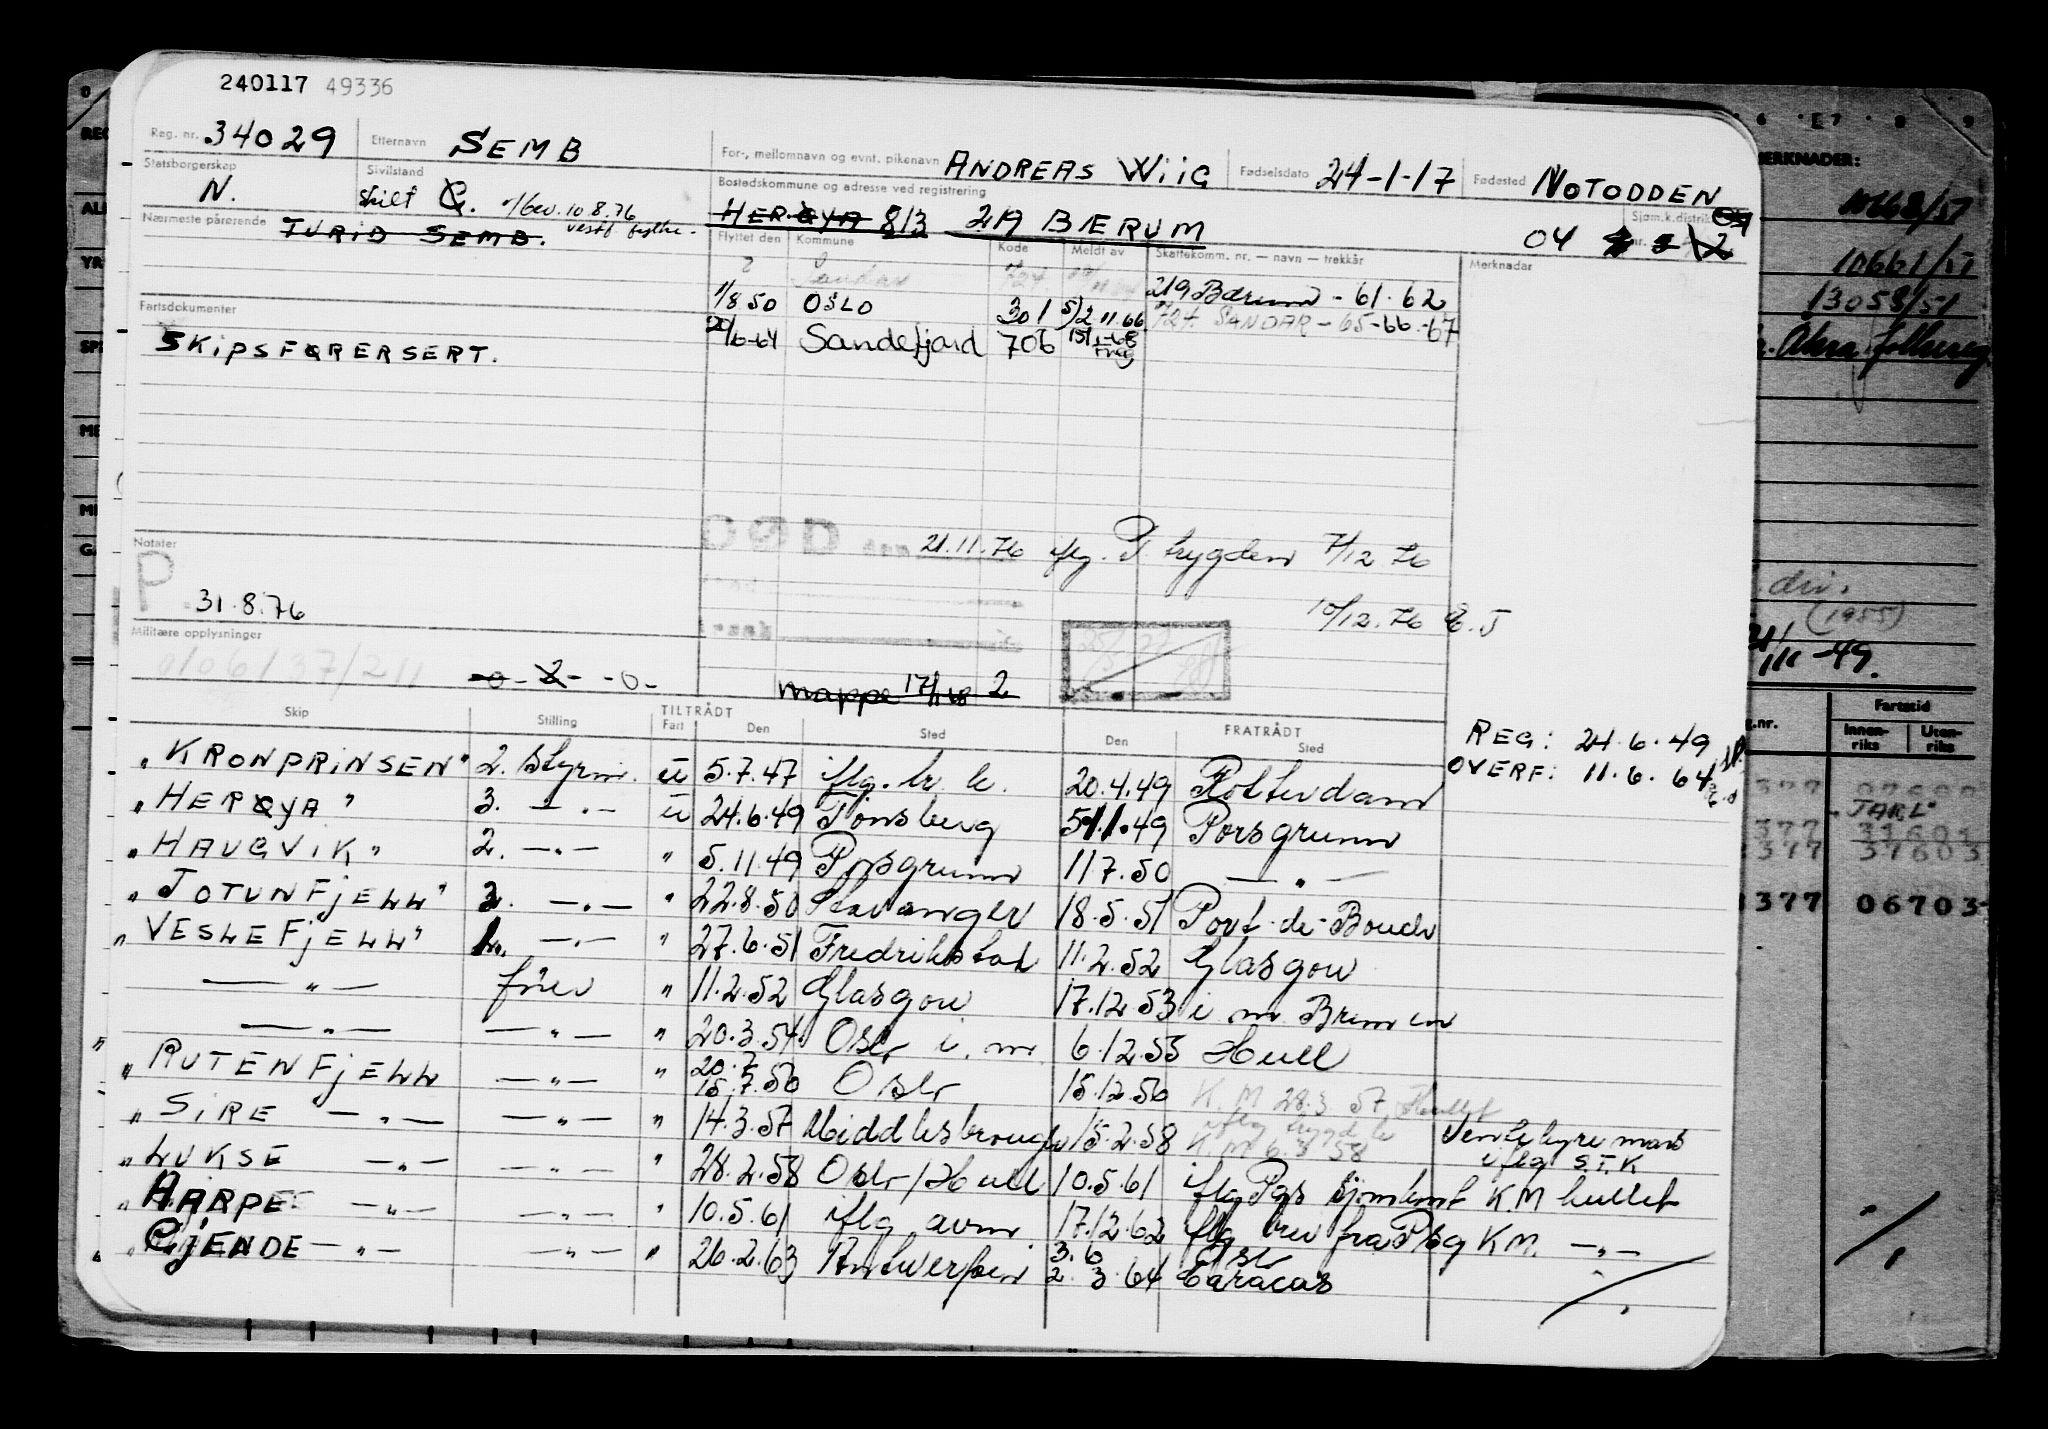 240117 49336
Reg. nr. 34029 Etternavn SEMB For-, mellomnavn og evnt. pikenavn ANDREAS WIIG Fødselsdato 24-1-17 Fødested NOTODDEN
Statsborgerskap N. Sivilstand skilt G. 10.8.76 Bostedskommune og adresse ved registrering HERØYA 813 219 BÆRUM 04 2 Sjøm.k.distrikt
Nærmeste pårørende TURID SEMB.
Flyttet den Kommune Kode Meldt av Skattekomm. nr. — navn — trekkår Merknader
? Sandar 219 Bærum - 61-62
1/8 50 OSLO 301 5/2 11.66 SANDAR - 65-66-67
Fartsdokumenter
SKIPSFØRERSERT. 20/6-64 Sandefjord 706
Notater
P 31.8.76
DØD den 21.11.76 iflg. P trygden 7/12 76
10/12.76 E.J
Militære opplysninger
0106/37/211 -0- 2- -0-
mappe 17/1 68 2
Skip Stilling TILTRÅDT Fart Den Sted FRATRÅDT Den Sted
"KRONPRINSEN" 2. Styrm. u 5.7.47 iflg. 20.4.49 Rotterdam REG: 24.6.49
"HERØYA" 3. —"— u 24.6.49 Tønsberg 5/11.49 Porsgrunn OVERF: 11.6.64
"HAUGVIK" 2. —"— " 5.11.49 Porsgrunn 11 7.50 —"—
"JOTUNFJELL" 2. —"— " 22.8.50 Stavanger 18.5.51 Port-de-Bouc
"VESLEFJELL" 1. —"— " 27.6.51 Fredrikstad 11.2.52 Glasgow
—"— fører " 11.2.52 Glasgow 17.12 53 i m Bremen
—"— —"— " 20.3.54 Oslo i. m. 6.12.55 Hull
"RUTENFJELL —"— " 20.7 15.7.56 Oslo 15.12.56 K. M 28.3 57
"SIRE —"— —"— " 14.3.57 Middlesbrough 15.2.58 K. M 6.3 58 Ventehyre iflg S.T.K
"LUKSE —"— —"— " 28.2.58 Oslo/Hull 10.5.61 iflg K.M hullet
"HARPE —"— —"— " 10.5.61 iflg avm 17.12.62 iflg brev fra K.M. —"—
"GJENDE —"— —"— " 26.2.63 Antwerpen 3.6 2.3.64 Oslo Caracas
MERKNADER:
10661/51
13058/51
(1955)
Fartstid
Innenriks Utenriks
"JARL"
377 31601
377 31603
377 06703